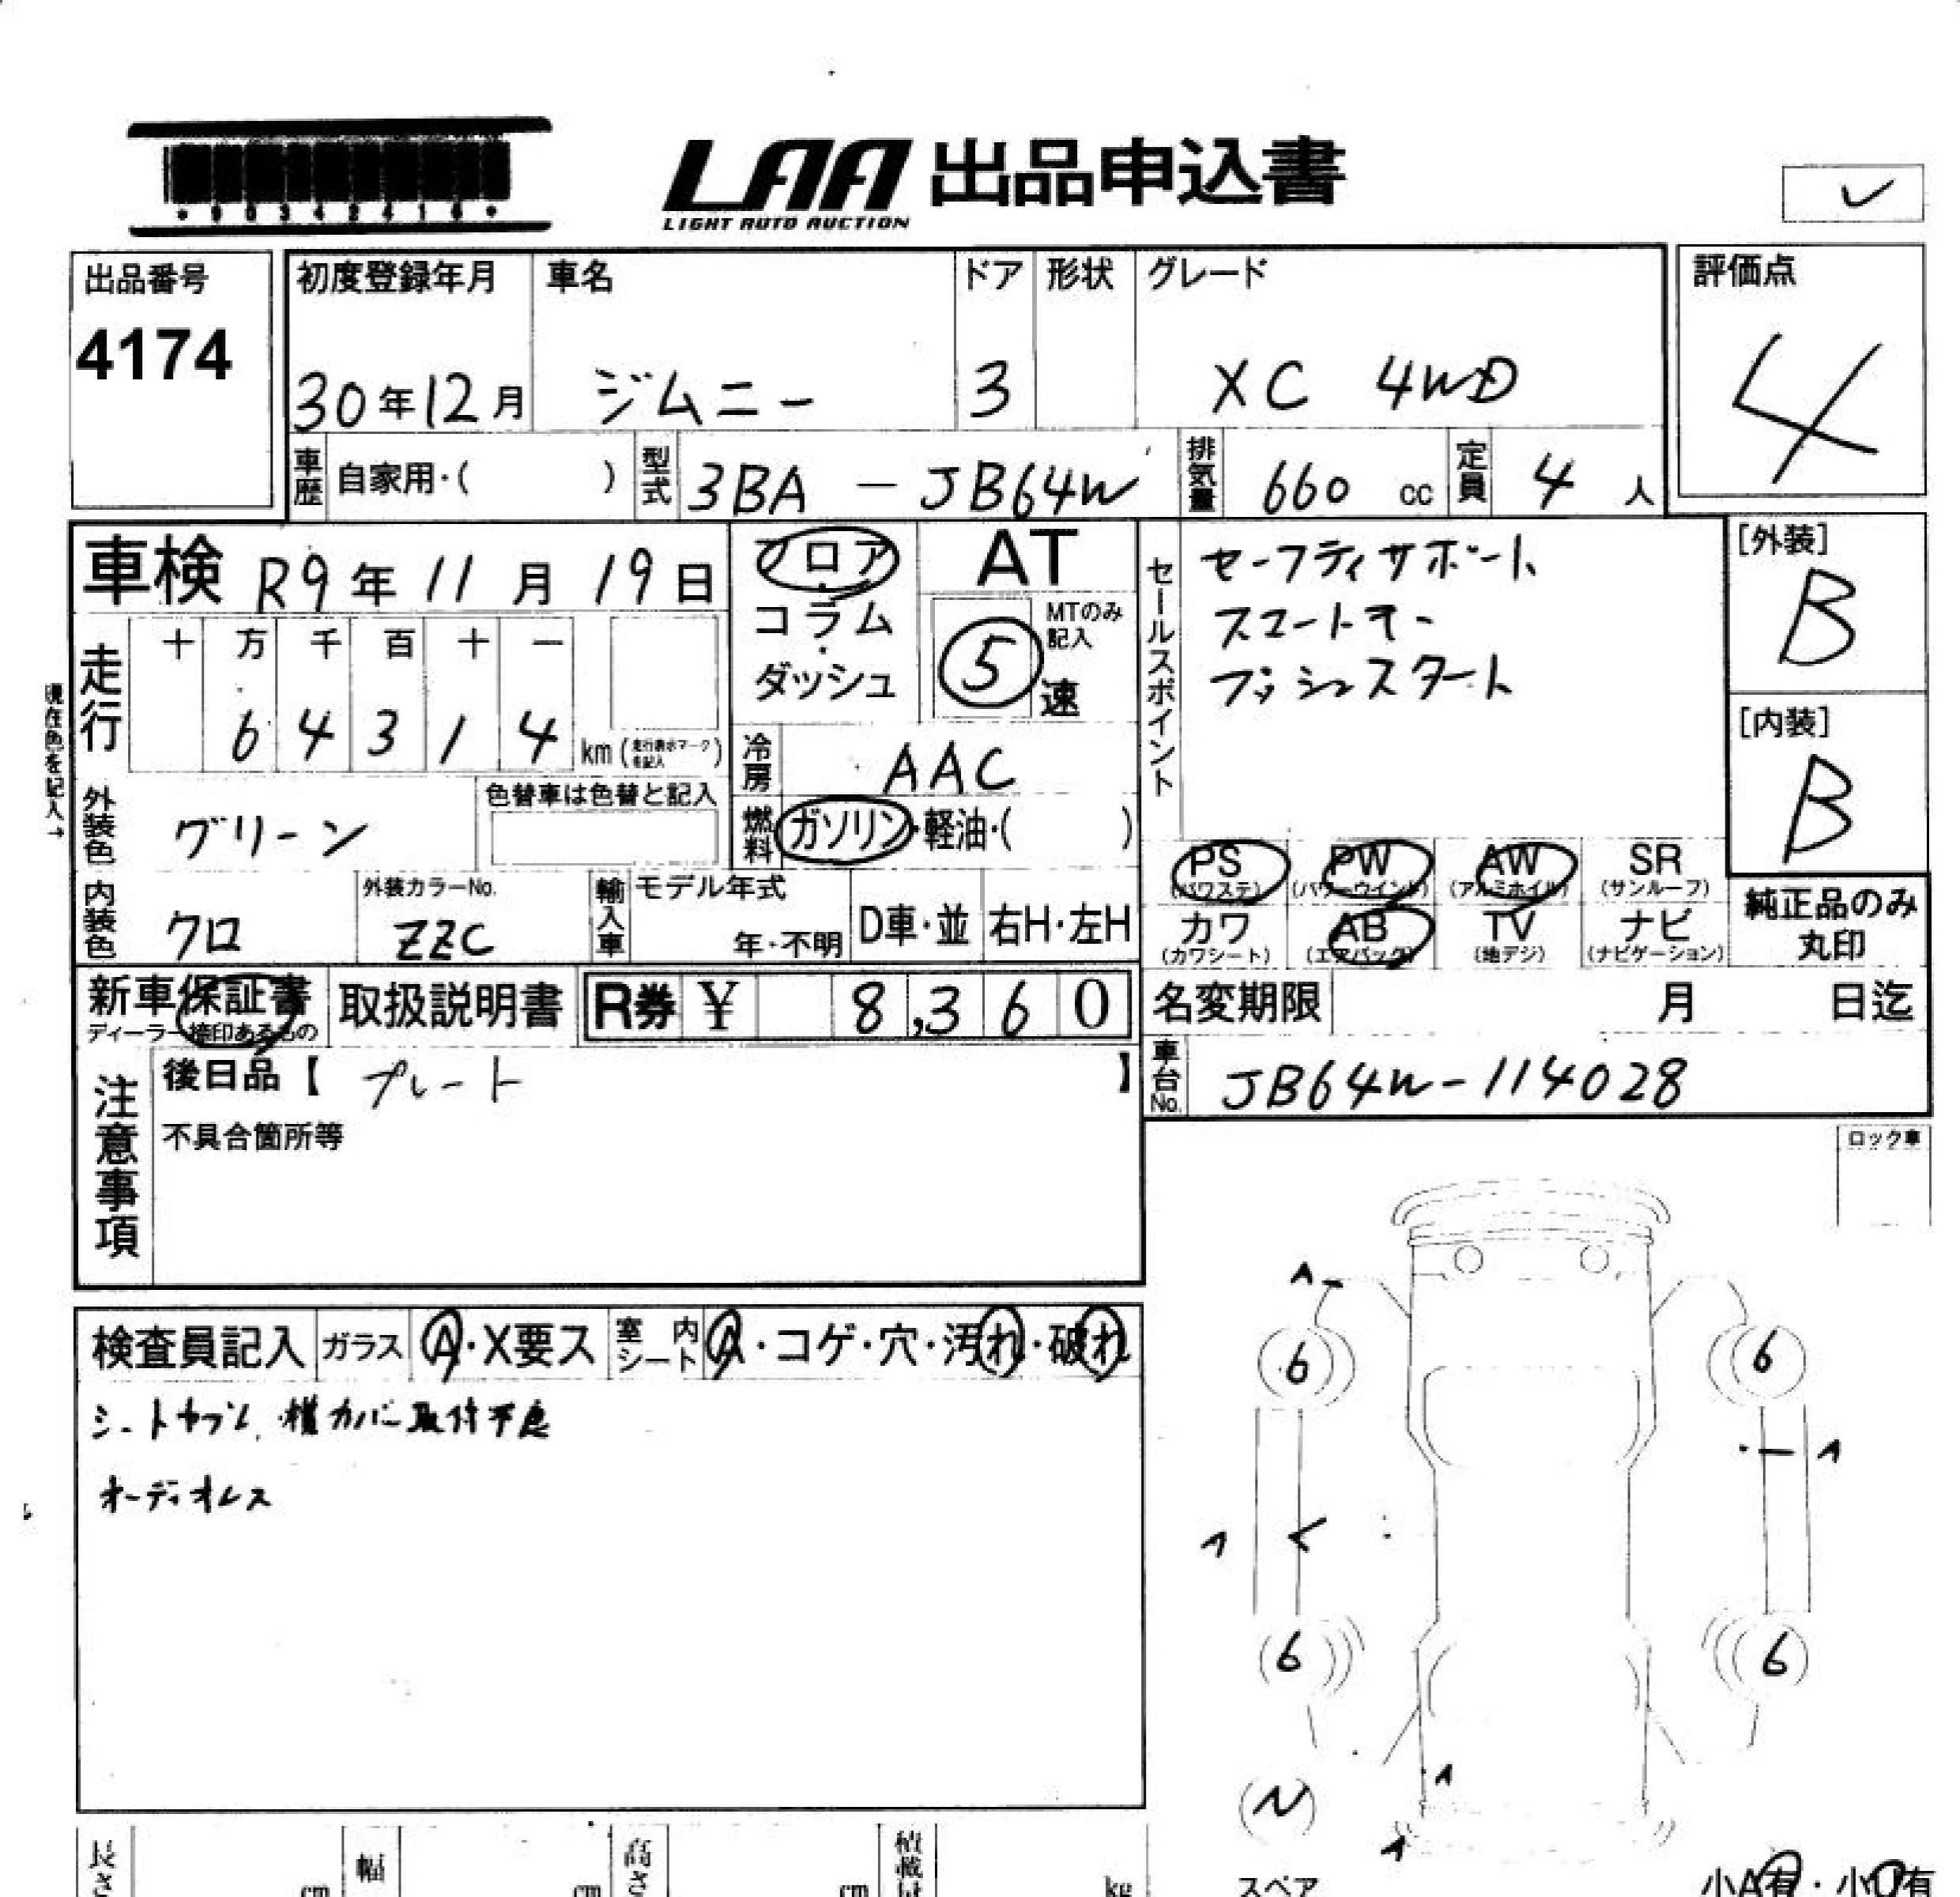 LAA 出品申込書
LIGHT AUTO AUCTION
出品番号
4174
初度登録年月 車名 ドア 形状 グレード
30年12月 ジムニー 3 XC 4WD
評価点
4
車歴 自家用・( ) 型式 3BA - JB64W 排気量 660 cc 定員 4 人
車検 R9年11月19日
フロア・コラム・ダッシュ
AT
MTのみ記入
5 速
セールスポイント
セーフティサポート
スマートキー
プッシュスタート
[外装]
B
[内装]
B
現在色を記入→
走行
十 万 千 百 十 一
6 4 3 1 4 km (走行表示マークを記入)
冷房 AAC
外装色 グリーン
色替車は色替と記入
燃料 ガソリン・軽油・( )
内装色 クロ
外装カラーNo.
ZZC
輸入車 モデル年式
年・不明 D車・並 右H・左H
PS (パワステ) PW (パワーウインド) AW (アルミホイル) SR (サンルーフ)
カワ (カワシート) AB (エアバック) TV (地デジ) ナビ (ナビゲーション)
純正品のみ
丸印
新車保証書 取扱説明書 R券 ¥ 8,360
ディーラー捺印あるもの
名変期限 月 日迄
注意事項
後日品【 プレート 】
不具合箇所等
車台No. JB64W-114028
ロック車
検査員記入 ガラス A・X要ス 室内シート A・コゲ・穴・汚れ・破れ
オーディオレス
A
6 6
A
A
6 6
A
A
スペア
長さ cm 幅 cm 高さ cm 積載量 kg
小A有・小U有